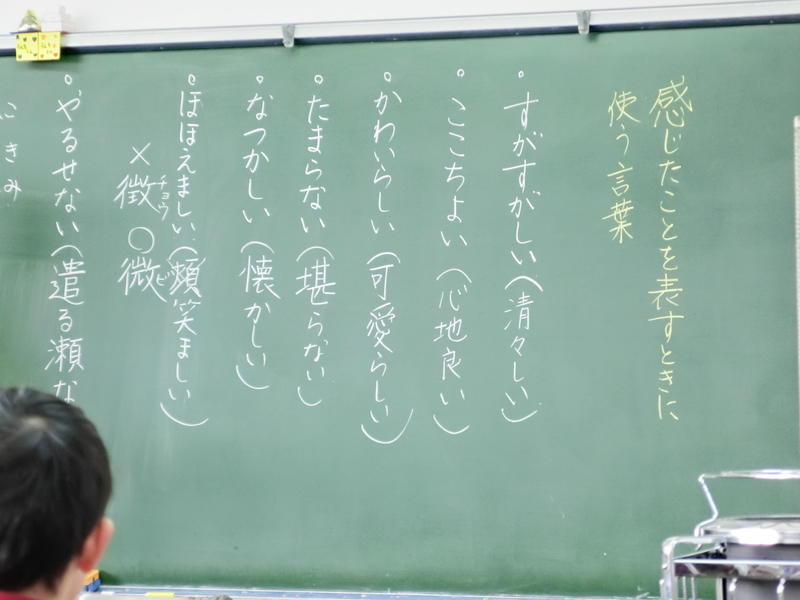 感じたことを表すときに
使う言葉
。すがすがしい(清々しい)
。ここちよい(心地良い)
。かわいらしい(可愛らしい)
。たまらない(堪らない)
。なつかしい(懐かしい)
。ほほえましい(頬笑ましい)
×徴チョウ ○微ビ
。やるせない(遣る瀬な